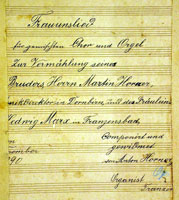 Trauungslied
für gemischten Chor und Orgel
Zur Vermählung seines
Bruders Herrn Martin Horner,
in Dornberg, mit des Fräulein
Hedwig Marx in Franzensbad,
Componirt und
gewidmet
90 von Anton Horner
Organist